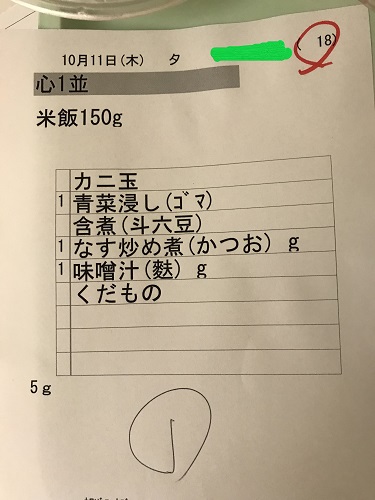 10月11日(木) 夕 ( 18)
心1並
米飯150g
カニ玉
1 青菜浸し(ｺﾞﾏ)
含煮(斗六豆)
1 なす炒め煮(かつお) g
1 味噌汁(麩) g
くだもの
5g
1